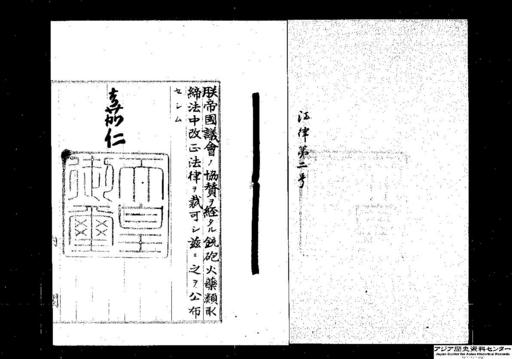 法律第二号
朕帝國議會ノ協賛ヲ経タル銃砲火藥類取
締法中改正法律ヲ裁可シ茲ニ之ヲ公布
セシム
嘉仁
天皇
御璽
アジア歴史資料センター
Japan Center for Asian Historical Records